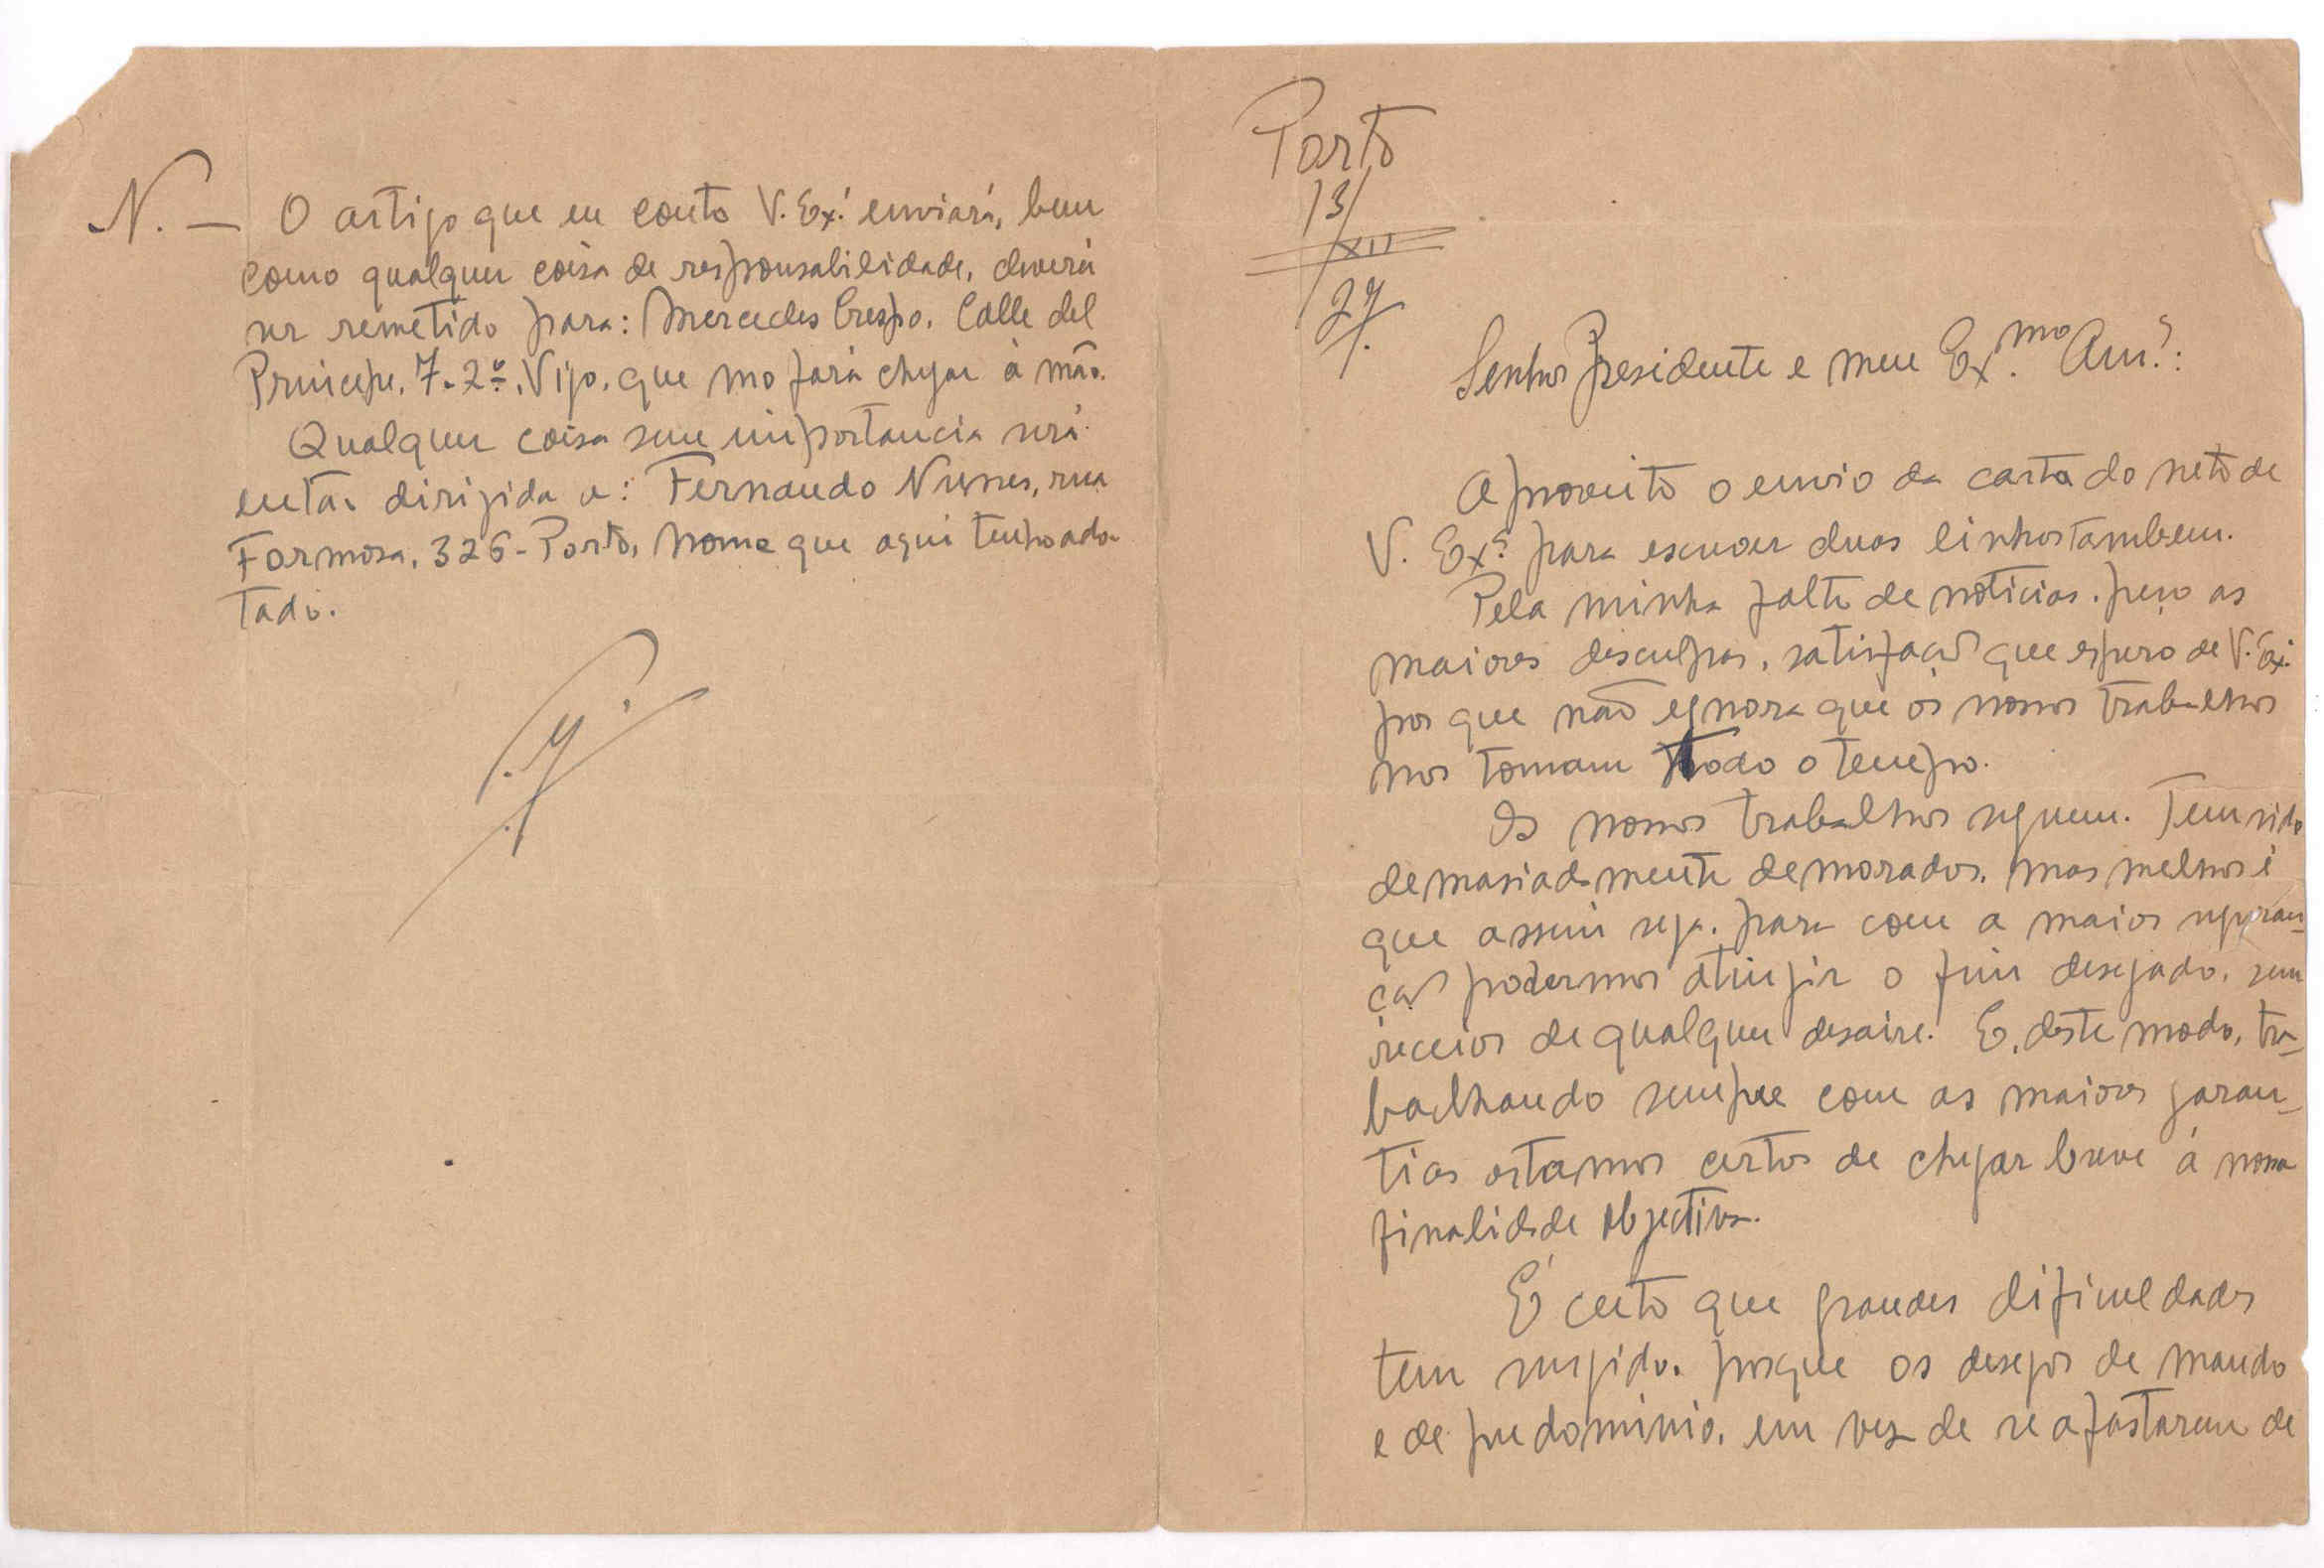 N. — O artigo que eu conto V. Ex.ª enviará, bem
como qualquer coisa de responsabilidade, deverá
ser remetido para: Mercedes Crespo. Calle del
Principe, 7-2º, Vigo, que mo fará chegar á mão.
Qualquer coisa sem importancia será
então dirigida a: Fernando Nunes, rua
Formosa, 326 - Porto, nome que aqui tenho ado-
tado.
Porto
13/
XII
27
Senhor Presidente e meu Ex.mo Am.º:
Aproveito o envio da carta do neto de
V. Ex.ª para escrever duas linhas tambem.
Pela minha falta de noticias, peço as
maiores desculpas, satisfação que espero de V. Ex.ª
por que não ignora que os nossos trabalhos
nos tomam todo o tempo.
Os nossos trabalhos seguem. Tem sido
demasiadamente demorados, mas melhor é
que assim seja, para com a maior seguran-
ça podermos atingir o fim desejado, sem
receios de qualquer desaire. E, deste modo, tra-
balhando sempre com as maiores garan-
tias estamos certos de chegar breve á nossa
finalidade objectiva.
É certo que grandes dificuldades
tem surgido, porque os desejos de mando
e de predominio, em vez de se afastarem de